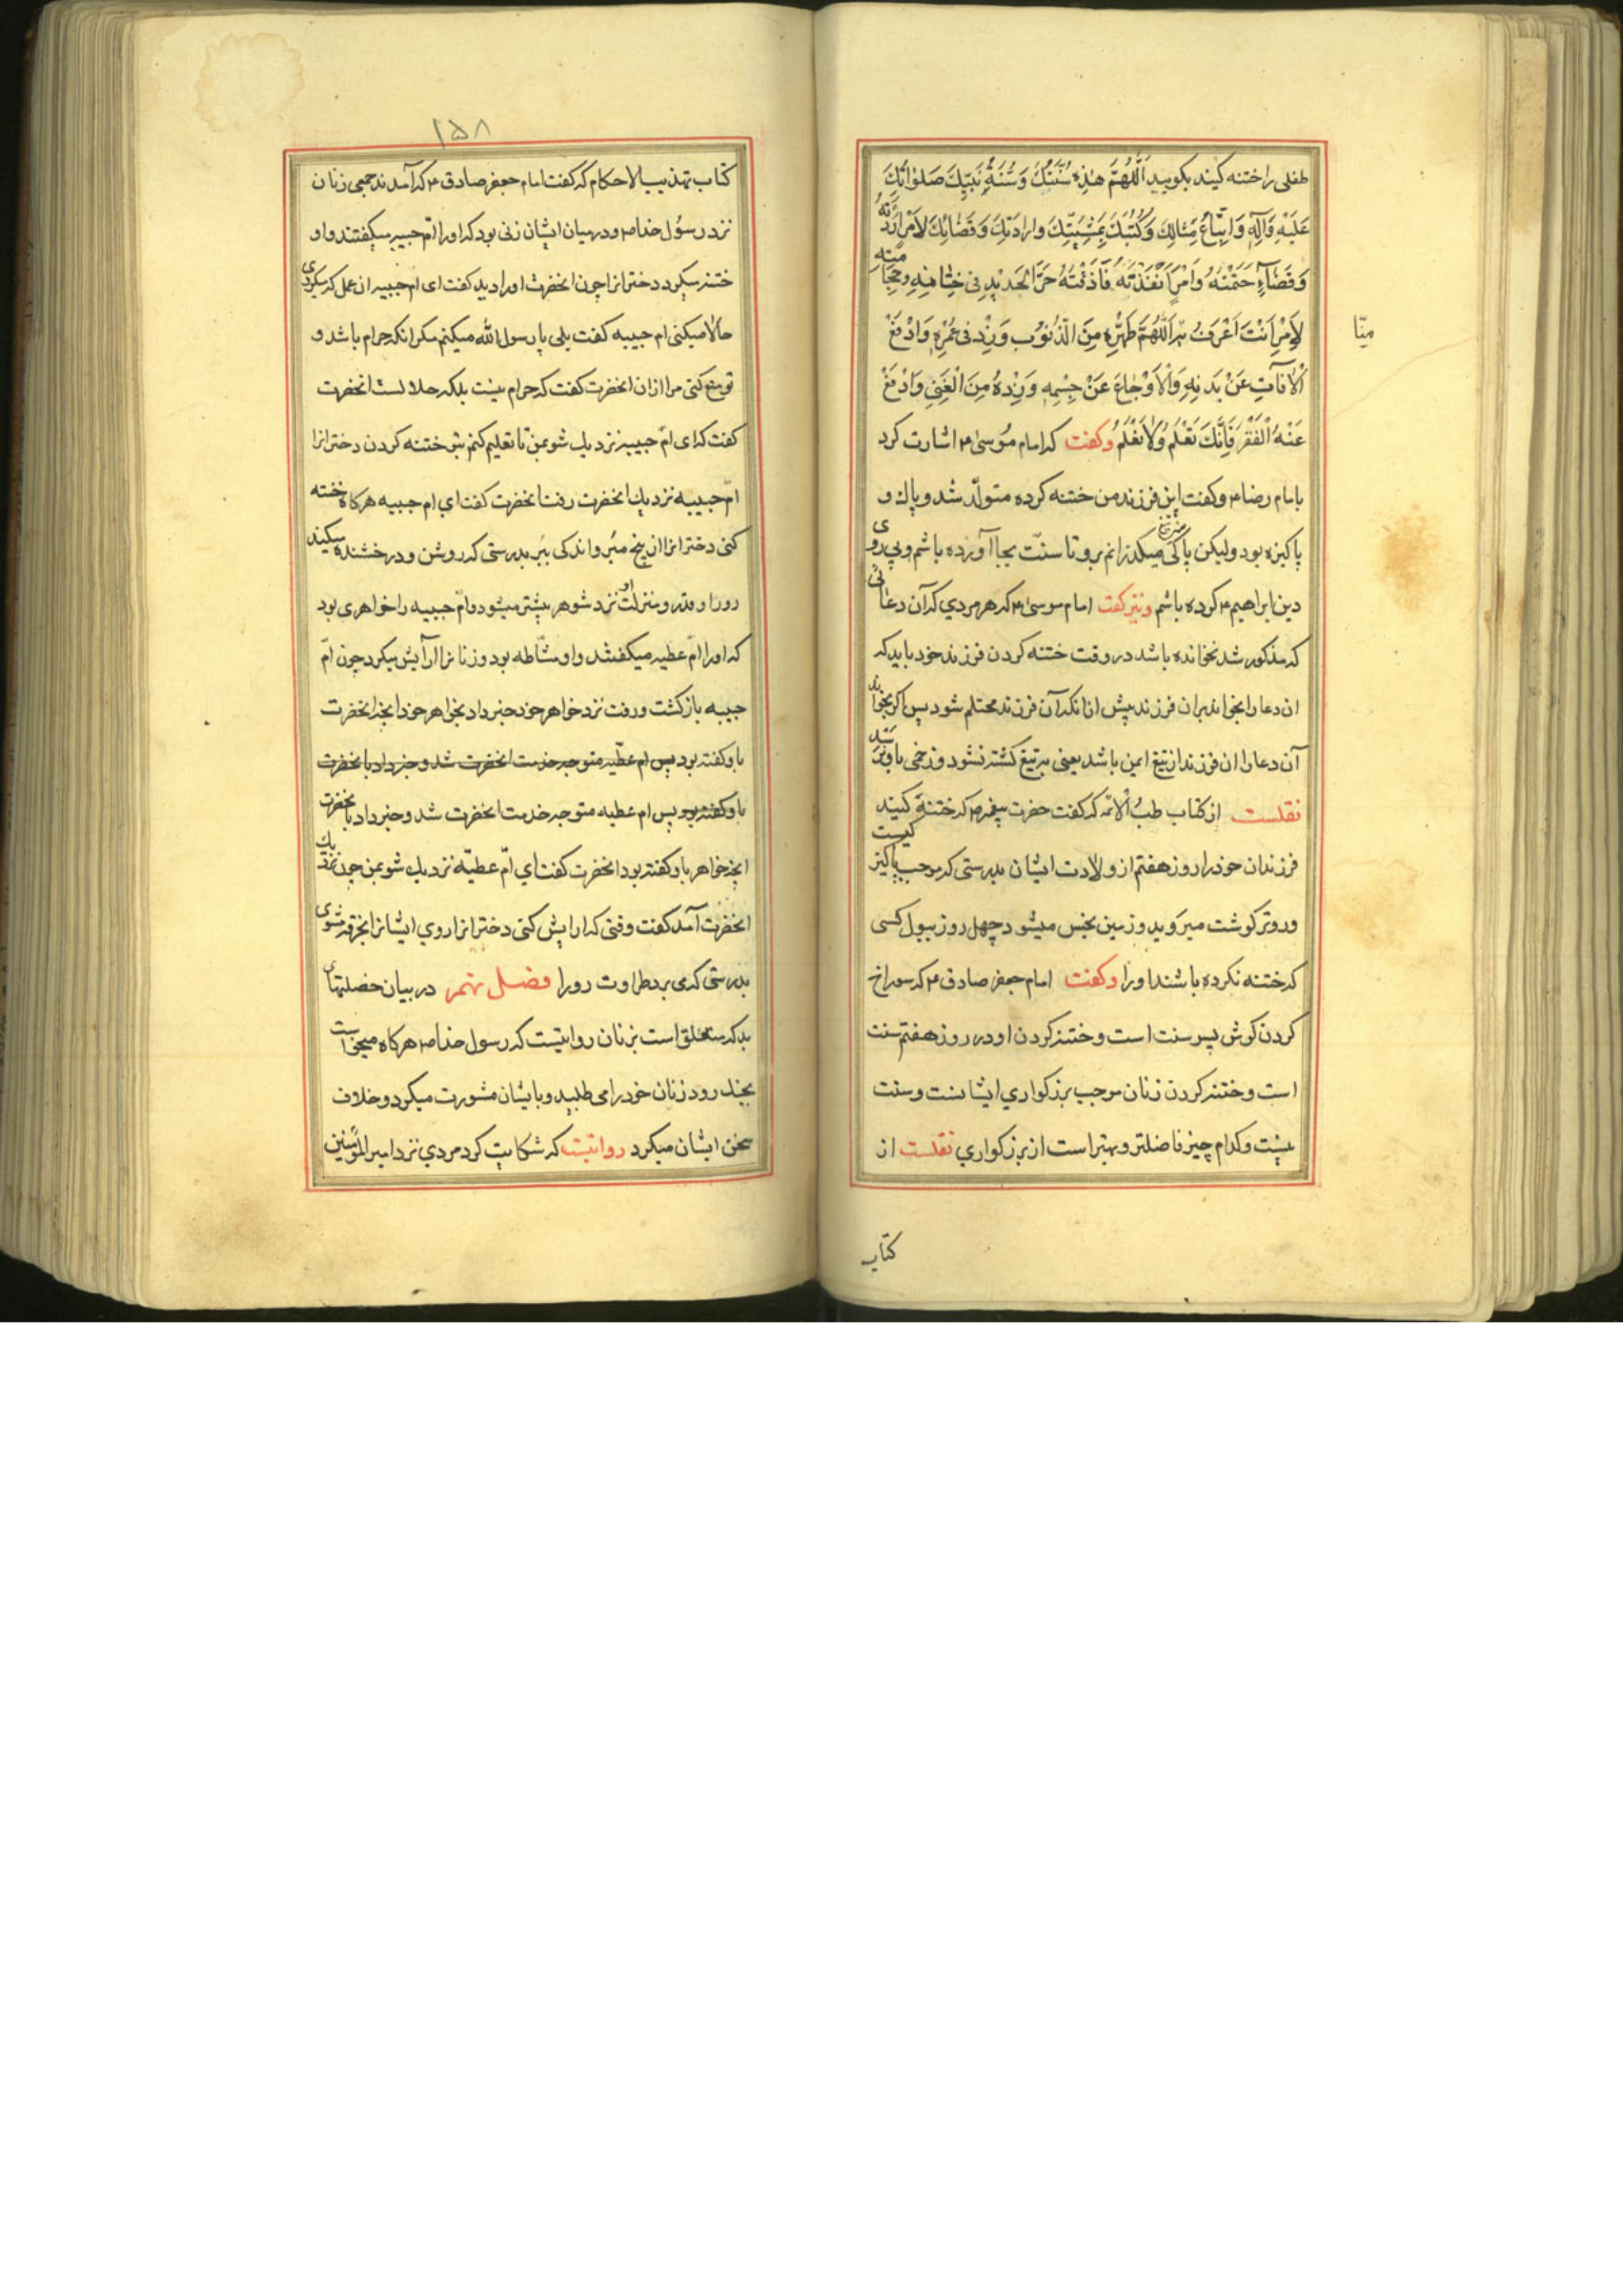 طفلی را ختنه کنید بکویید اَللّهُمَّ هٰذِهِ سُنَّتُكَ وَسُنَّةُ نَبِيِّكَ صَلَوٰاتُكَ
عَلَيْهِ وَآلِهِ وَاتِّبَاعُ مِثٰالِكَ وَكُتُبِكَ بِمَشِيَّتِكَ وَاِرٰادَتِكَ وَقَضٰائِكَ لِاَمْرٍ اَرَدْتَهُ
وَقَضَآءٍ حَتَمْتَهُ وَاَمْرٍ اَنْفَذْتَهُ فَاَذَقْتَهُ حَرَّ الْحَدٖيدِ فٖی خِتٰانِهِ وَحِجٰامَتِهِ
لِاَمْرٍ اَنْتَ اَعْرَفُ بِهِ اَللّهُمَّ طَهِّرْهُ مِنَ الذُّنُوبِ وَزِدْ فٖی عُمْرِهِ وَادْفَعْ
اَلْاٰفٰاتِ عَنْ بَدَنِهِ وَالْاَوْجٰاعَ عَنْ جِسْمِهِ وَزِدْهُ مِنَ الْغِنٰی وَادْفَعْ
عَنْهُ الْفَقْرَ فَاِنَّكَ تَعْلَمُ وَلاٰ نَعْلَمُ وکفت که امام مُوسیٰ ۴ اشارت کرد
بامام رضا ۴ وکفت این فرزند من ختنه کرده متولّد شد و پاك و
پاکیزه بود ولیکن پاکی میکذرانم برو تا سنّت بجا آورده باشم وپی روی
دین ابراهیم ۴ کرده باشم ونیز کفت امام موسیٰ ۴ که هر مردی که آن دعائی
که مذکور شد نخوانده باشد در وقت ختنه کردن فرزند خود باید که
ان دعا را بخواند بران فرزند پیش از انکه آن فرزند محتلم شود پس اکر بخواند
آن دعا را ان فرزند از تیغ ایمن باشد یعنی بتیغ کشته نشود و زخمی باو نرسد
نقلست از کتاب طبُ الْائمّه که کفت حضرت پیغمبر ۴ که ختنه کنید
فرزندان خود را روز هفتم از ولادت ایشان بدرستی که موجب پاکیزکیست
وزودتر کوشت میروید وزمین نجس میشود چهل روز ببول کسی
که ختنه نکرده باشند او را وکفت امام جعفر صادق ۴ که سوراخ
کردن کوش پسر سنت است و ختنه کردن او در روز هفتم سنت
است وختنه کردن زنان موجب بزرکواری ایشانست وسنت
نیست وکدام چیز فاضلتر وبهتر است از بزرکواری نقلست از
منّا
کتاب
۱۵۸
کتاب تهذیب الاحکام که کفت امام جعفر صادق ۴ که آمدند جمعی زنان
نزد رسوُل خدا ص و در میان ایشان زنی بود که او را امّ حبیبه میکفتند واو
ختنه میکرد دخترانرا چون انحضرت او را دید کفت ای ام حبیبه ان عمل که میکردی
حالا میکنی ام حبیبه کفت بلی یا رسول الله میکنم مکر انکه حرام باشد و
تو منع کنی مرا از ان انحضرت کفت که حرام نیست بلکه حلالست انحضرت
کفت که ای امّ حبیبه نزدیك شو بمن تا تعلیم کنم بتو ختنه کردن دخترانرا
امّ حبیبه نزدیك انحضرت رفت انحضرت کفت ای ام حبیبه هرکاه ختنه
کنی دخترانرا از بیخ مَبُر و اندکی ببُر بدرستی که روشن و درخشنده میکند
رو را وقدر و منزلت او نزد شوهر بیشتر میشود و امّ حبیبه را خواهری بود
که او را امّ عطیه میکفتند و او مشّاطه بود و زنانرا آرایش میکرد چون امّ
حبیبه بازکشت ورفت نزد خواهر خود خبر داد بخواهر خود انچه انحضرت
باو کفته بود پس ام عطیّه متوجه خدمت انحضرت شد وخبر داد بانحضرت
باو کفته بود پس ام عطیه متوجه خدمت انحضرت شد وخبر داد بانحضرت
انچه خواهر باو کفته بود انحضرت کفت ای امّ عطیّه نزدیك شو بمن چون نزدیك
انحضرت آمد کفت وقتی که ارایش کنی دخترانرا روی ایشانرا بخرقه مشوی
بدرستی که می برد طراوت رو را فصل نهم در بیان خصلتهای
بد که متعلق است بزنان روایتست که رسول خدا ص هرکاه میخواست
بجنك رود زنان خود را می طلبید و با ایشان مشورت میکرد وخلاف
سخن ایشان میکرد روایتست که شکایت کرد مردی نزد امیر المؤمنین